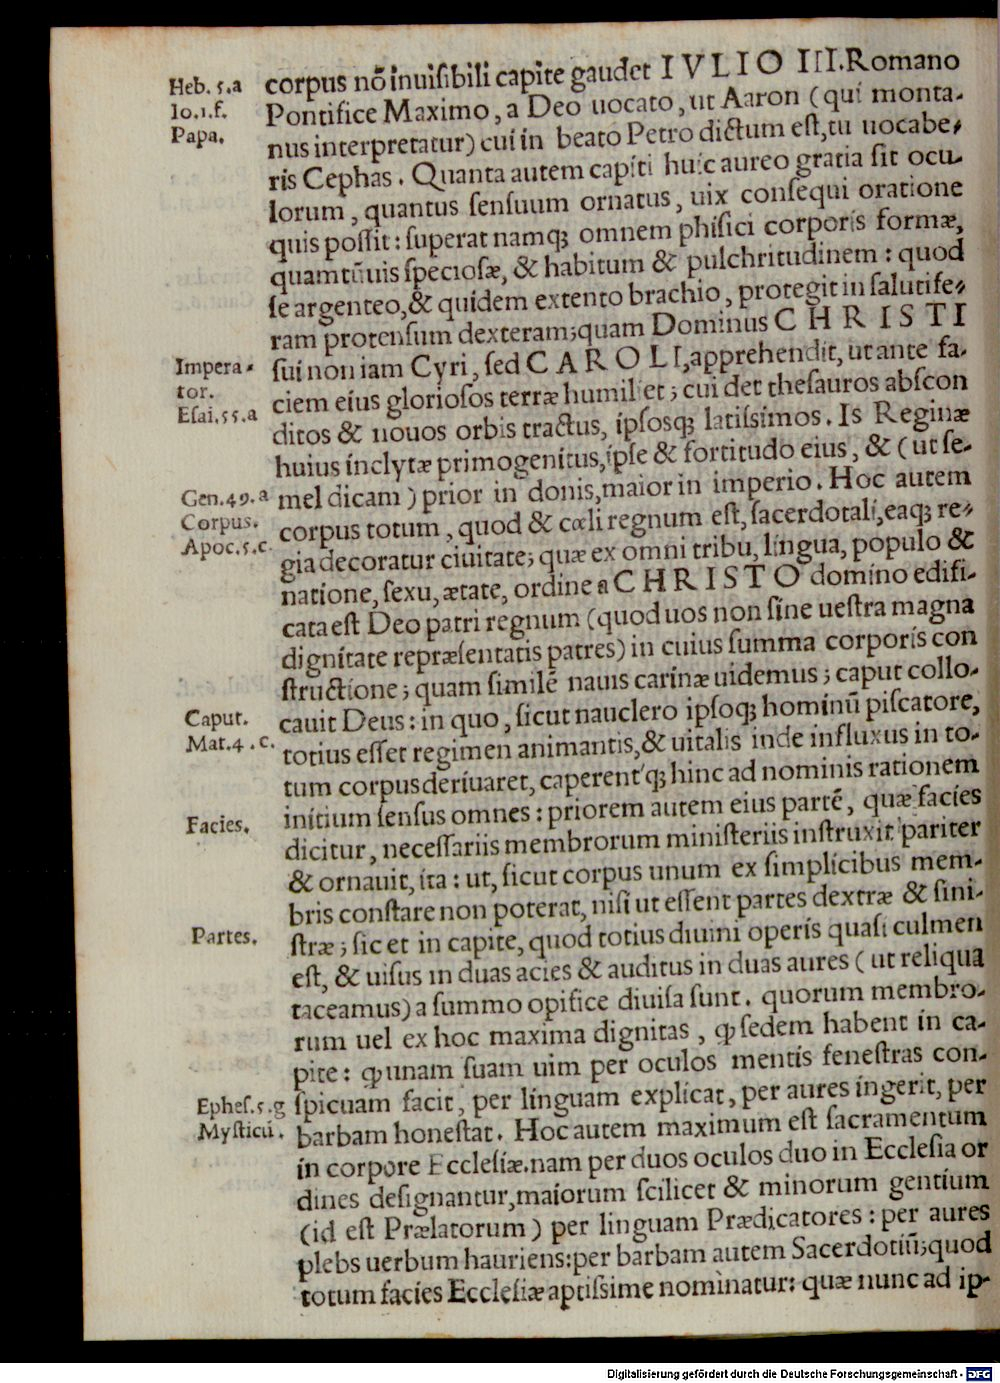 Heb. 5.a
Io.1.f.
Papa.
corpus nō inuiſibili capite gaudet IVLIO III. Romano
Pontifice Maximo, a Deo uocato, ut Aaron (qui monta-
nus interpretatur) cui in beato Petro dictum eſt, tu uocabe-
ris Cephas. Quanta autem capiti huic aureo gratia ſit ocu-
lorum, quantus ſenſuum ornatus, uix conſequi oratione
quis poſſit: ſuperat namqꝫ omnem phiſici corporis formæ,
quamtūuis ſpecioſæ, & habitum & pulchritudinem: quod
ſe argenteo, & quidem extento brachio, protegit in ſalutife-
ram protenſum dexteram; quam Dominus CHRISTI
Impera-
tor.
Eſai.55.a
ſui non iam Cyri, ſed CAROLI, apprehendit, ut ante fa-
ciem eius glorioſos terræ humiliet; cui det theſauros abſcon
ditos & nouos orbis tractus, ipſosqꝫ latiſsimos. Is Reginæ
huius inclytæ primogenitus, ipſe & fortitudo eius, & (ut ſe-
Gen.49.a
Corpus.
Apoc.5.c.
mel dicam) prior in donis, maior in imperio. Hoc autem
corpus totum, quod & cœli regnum eſt, ſacerdotali, eaqꝫ re-
gia decoratur ciuitate; quæ ex omni tribu, lingua, populo &
natione, ſexu, ætate, ordine a CHRISTO domino edifi-
cata eſt Deo patri regnum (quod uos non ſine ueſtra magna
dignitate repræſentatis patres) in cuius ſumma corporis con
ſtructione; quam ſimilē nauis carinæ uidemus; caput collo-
Caput.
Mat.4.c.
cauit Deus: in quo, ſicut nauclero ipſoqꝫ hominū piſcatore,
totius eſſet regimen animantis, & uitalis inde influxus in to-
tum corpus deriuaret, caperentqꝫ hinc ad nominis rationem
initium ſenſus omnes: priorem autem eius partē, quæ facies
Facies.
dicitur, neceſſariis membrorum miniſteriis inſtruxit pariter
& ornauit, ita: ut, ſicut corpus unum ex ſimplicibus mem-
bris conſtare non poterat, niſi ut eſſent partes dextræ & ſini-
Partes.
ſtræ; ſic et in capite, quod totius diuini operis quaſi culmen
eſt, & uiſus in duas acies & auditus in duas aures (ut reliqua
taceamus) a ſummo opifice diuiſa ſunt. quorum membro-
rum uel ex hoc maxima dignitas, ꝙ ſedem habent in ca-
pite: ꝙ unam ſuam uim per oculos mentis feneſtras con-
Epheſ.5.g
Myſticū.
ſpicuam facit, per linguam explicat, per aures ingerit, per
barbam honeſtat. Hoc autem maximum eſt ſacramentum
in corpore Eccleſiæ. nam per duos oculos duo in Eccleſia or
dines deſignantur, maiorum ſcilicet & minorum gentium
(id eſt Prælatorum) per linguam Prædicatores: per aures
plebs uerbum hauriens: per barbam autem Sacerdotiū; quod
totum facies Eccleſiæ aptiſsime nominatur: quæ nunc ad ip-
Digitalisierung gefördert durch die Deutsche Forschungsgemeinschaft - DFG